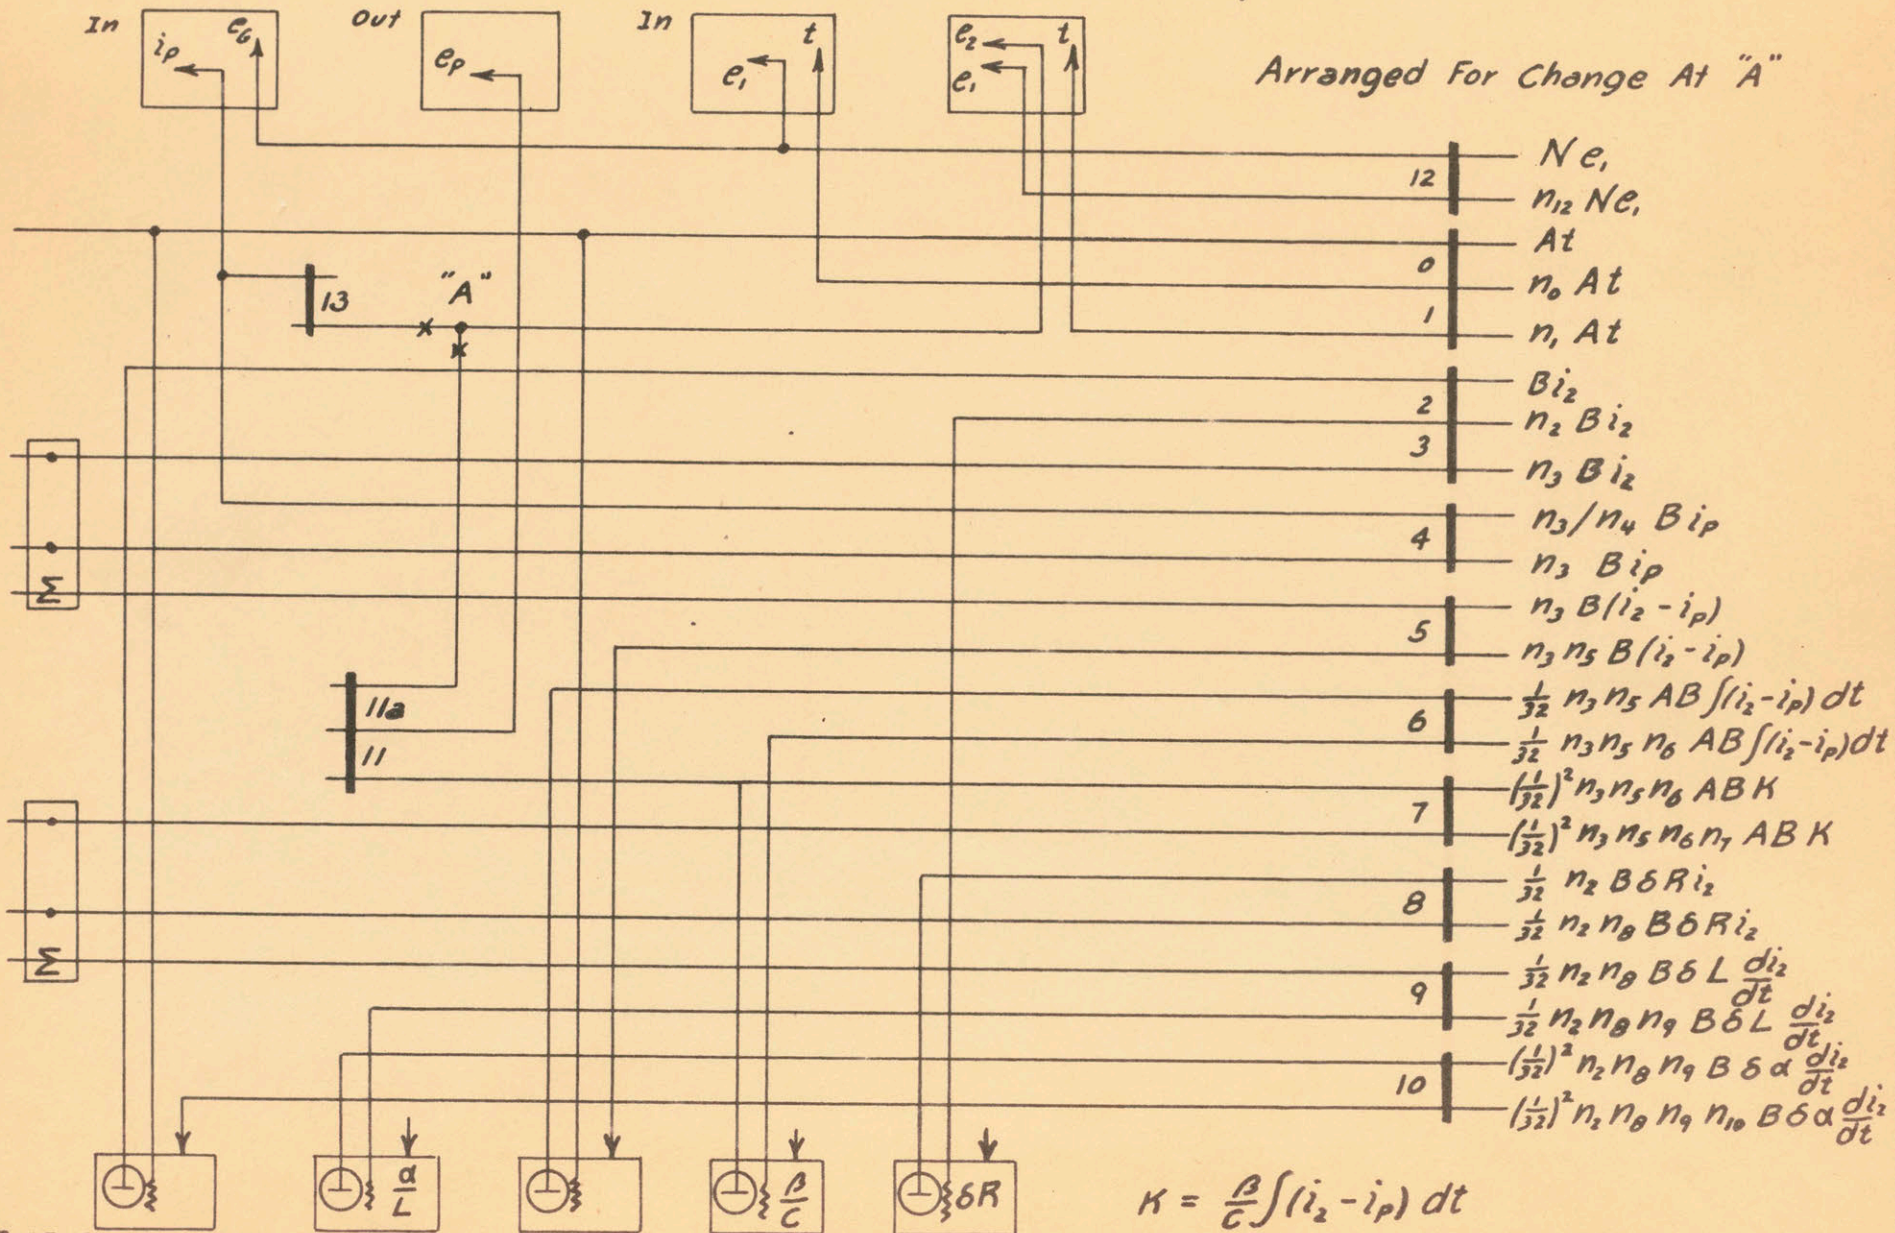 In
i_P
e_G
Out
e_P
In
e_1
t
e_2
e_1
t
Arranged For Change At "A"
12
N e_1
n_12 N e_1
0
1
At
n_0 At
n_1 At
13
"A"
x
x
2
3
B i_2
n_2 B i_2
n_3 B i_2
4
n_3/n_4 B i_P
n_3 B i_P
Σ
5
n_3 B(i_2 - i_P)
n_3 n_5 B(i_2 - i_P)
11a
11
6
1/32 n_3 n_5 AB∫(i_2 - i_P) dt
1/32 n_3 n_5 n_6 AB∫(i_2 - i_P) dt
7
(1/32)² n_3 n_5 n_6 ABK
(1/32)² n_3 n_5 n_6 n_7 ABK
8
1/32 n_2 B δ R i_2
1/32 n_2 n_8 B δ R i_2
Σ
9
1/32 n_2 n_8 B δ L di_2/dt
1/32 n_2 n_8 n_9 B δ L di_2/dt
10
(1/32)² n_2 n_8 n_9 B δ α di_2/dt
(1/32)² n_2 n_8 n_9 n_10 B δ α di_2/dt
α/L
β/C
δR
K = β/C ∫(i_2 - i_P) dt